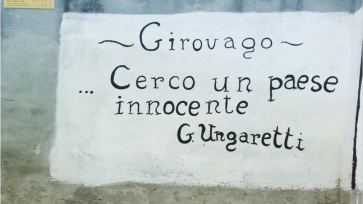 ~ Girovago ~
... Cerco un paese
innocente
G. Ungaretti